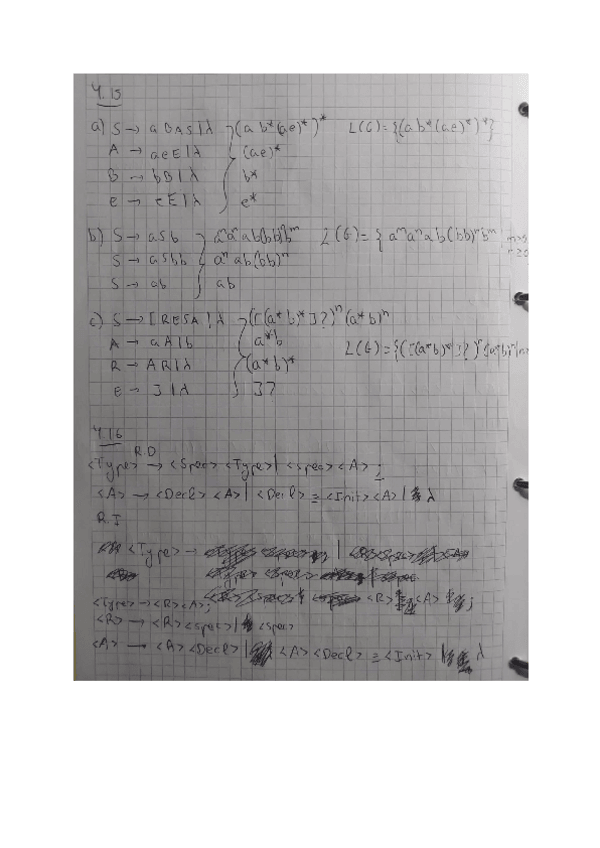 4.15
a) S → aBAS | λ (ab*(ae)*)* L(G)={(ab*(ae)*)*}
A → aeE | λ (ae)*
B → bB | λ b*
e → eE | λ e*
b) S → aSb L(G)= { aᵐaⁿab(bb)ⁿbᵐ
S → aSbb aⁿab(bb)ⁿ
S → ab ab
c) S → [RESA | λ ([(a*b)*]?)ⁿ(a*b)ⁿ
A → aA | b a*b
R → AR | λ (a*b)* L(G)={([(a*b)*]?)ⁿ(a*b)ⁿ
e → ] | λ ]?
4.16
R.D
<Type> → <Spec> <Type> | <spec> <A> ;
<A> → <Decl> <A> | <Decl> = <Init> <A> | λ
R I
<Type> →
<R> <A> ;
<Type> → <R> <A> ;
<R> → <R> <spec> | <spec>
<A> → <A> <Decl> | <A> <Decl> = <Init> | λ